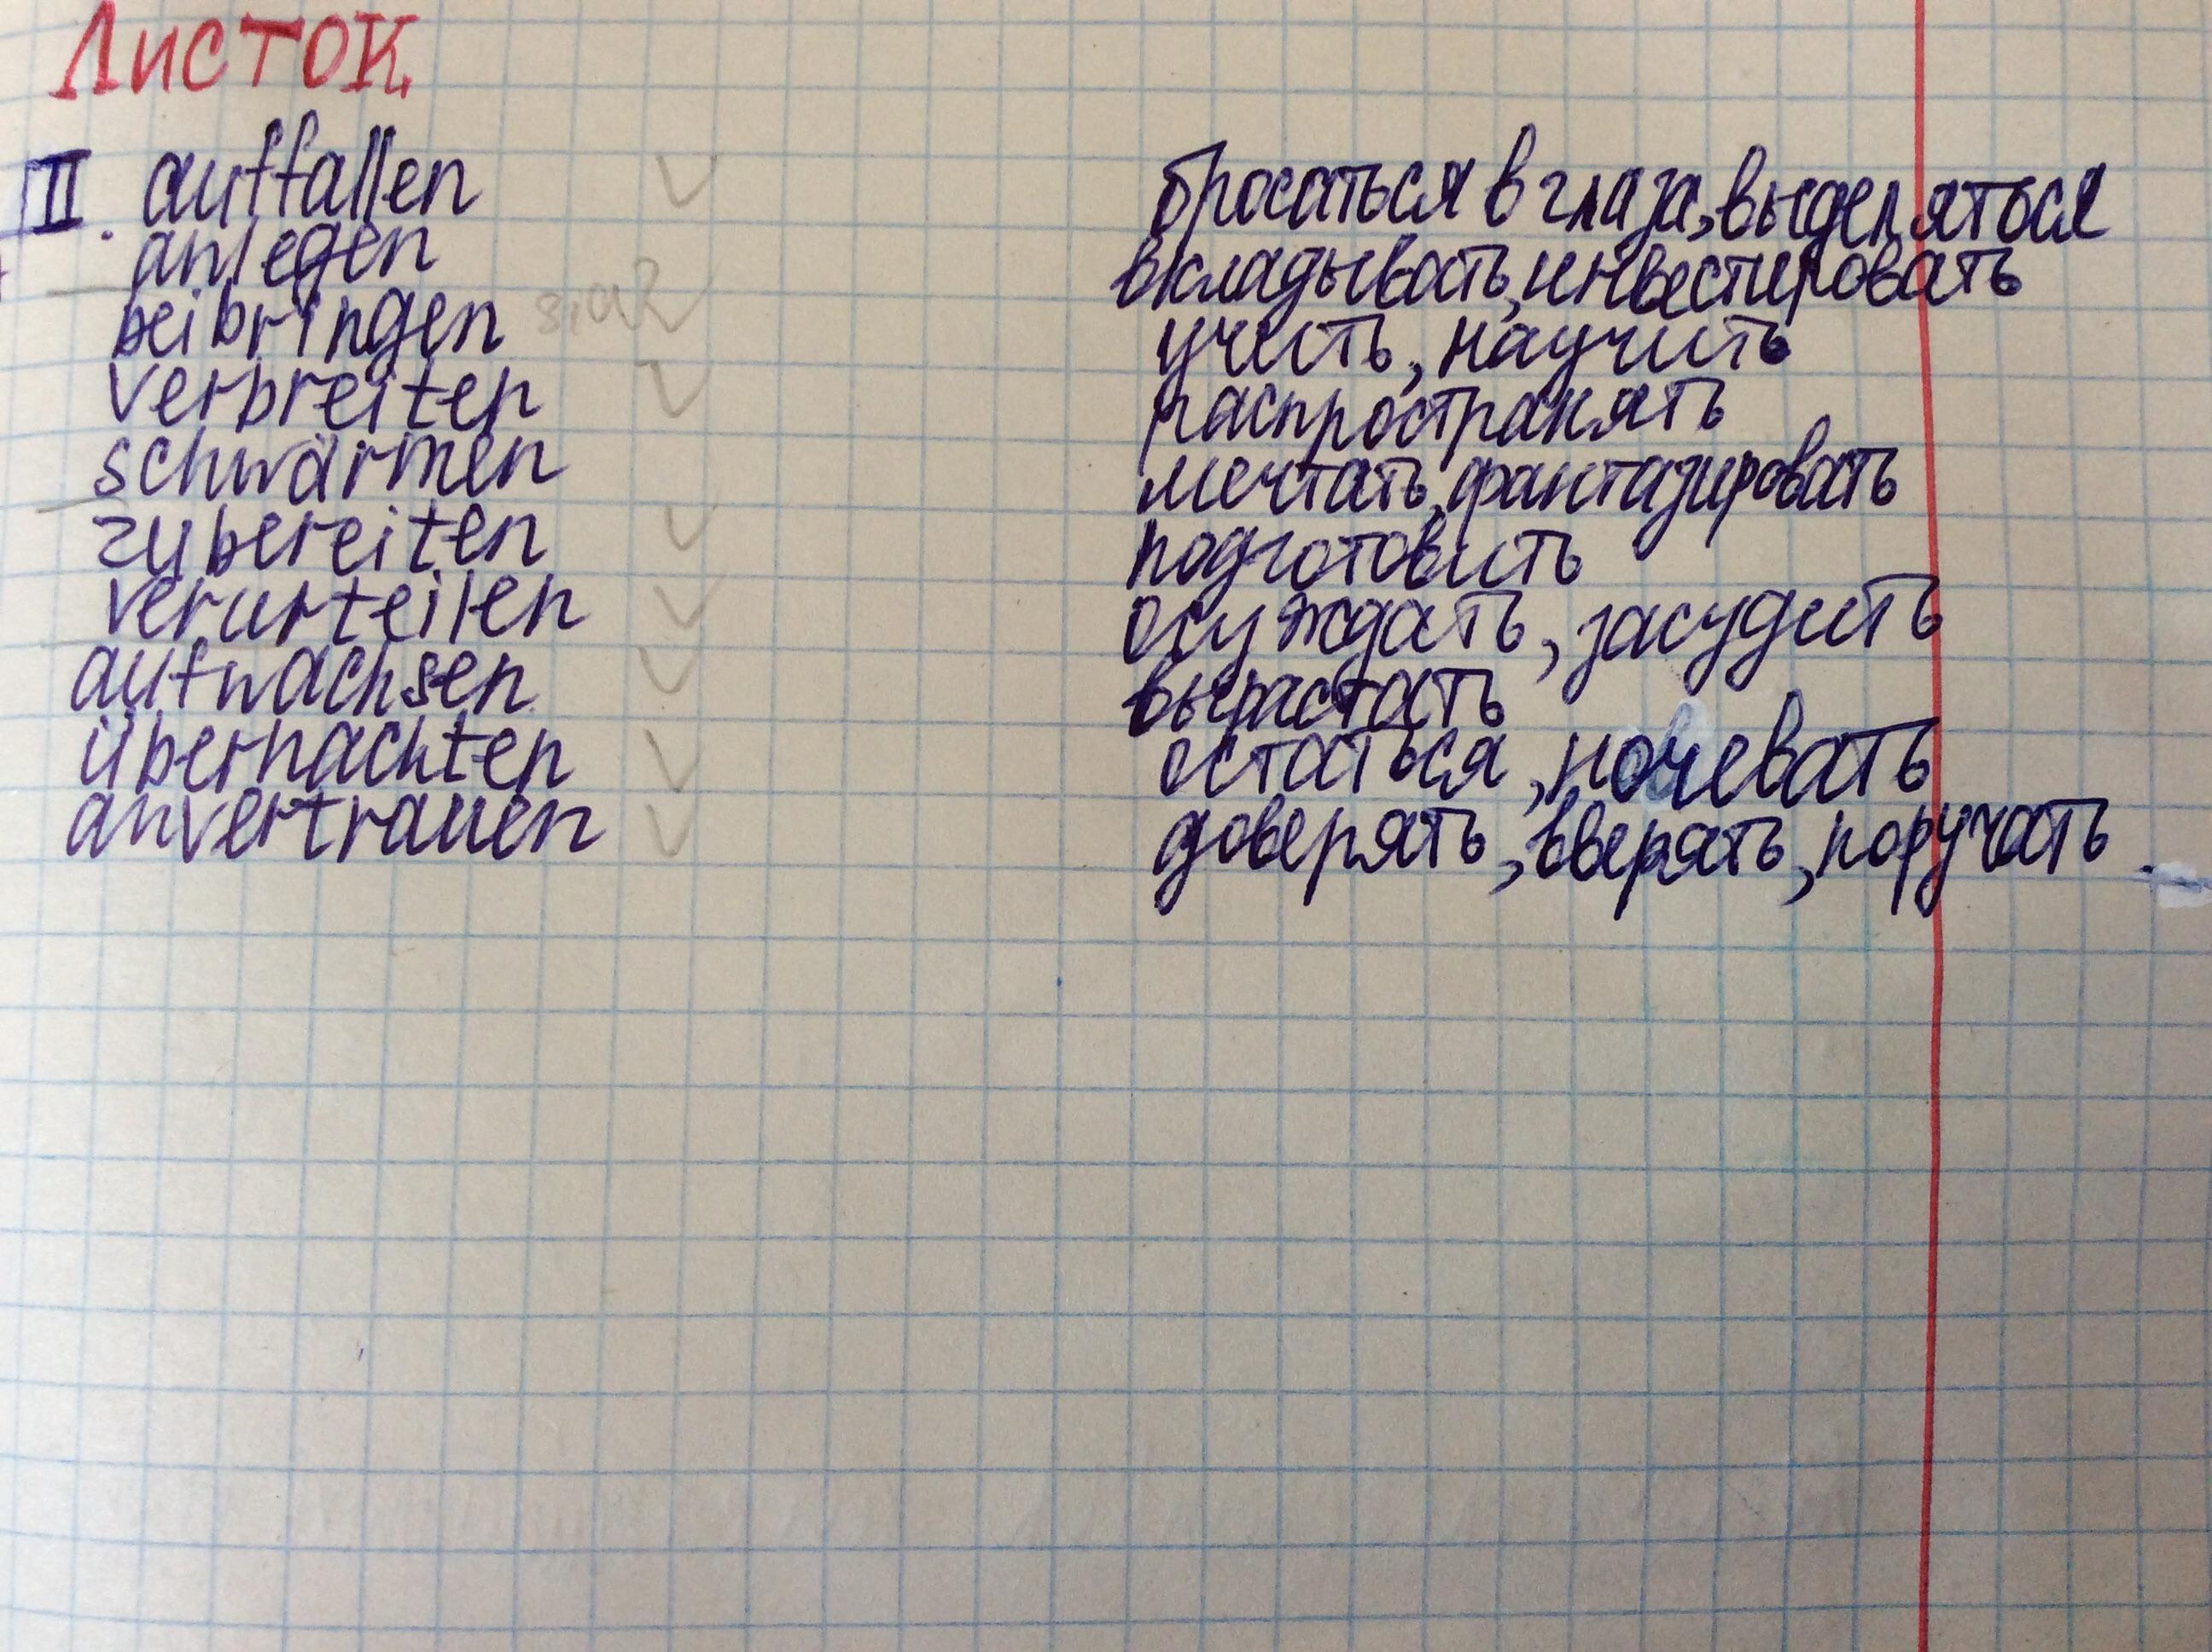 Листок
II. auffallen бросаться в глаза, выделяться
anlegen вкладывать, инвестировать
beibringen учить, научить
verbreiten распространять
schwärmen мечтать, фантазировать
zubereiten подготовить
verurteilen осуждать, засудить
aufwachsen вырастать
übernachten остаться, ночевать
anvertrauen доверять, вверять, поручать